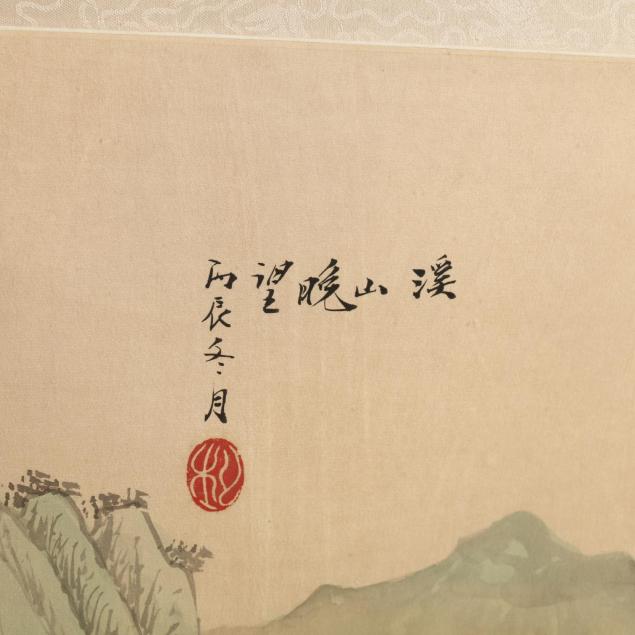 溪山晚望
丙辰冬月